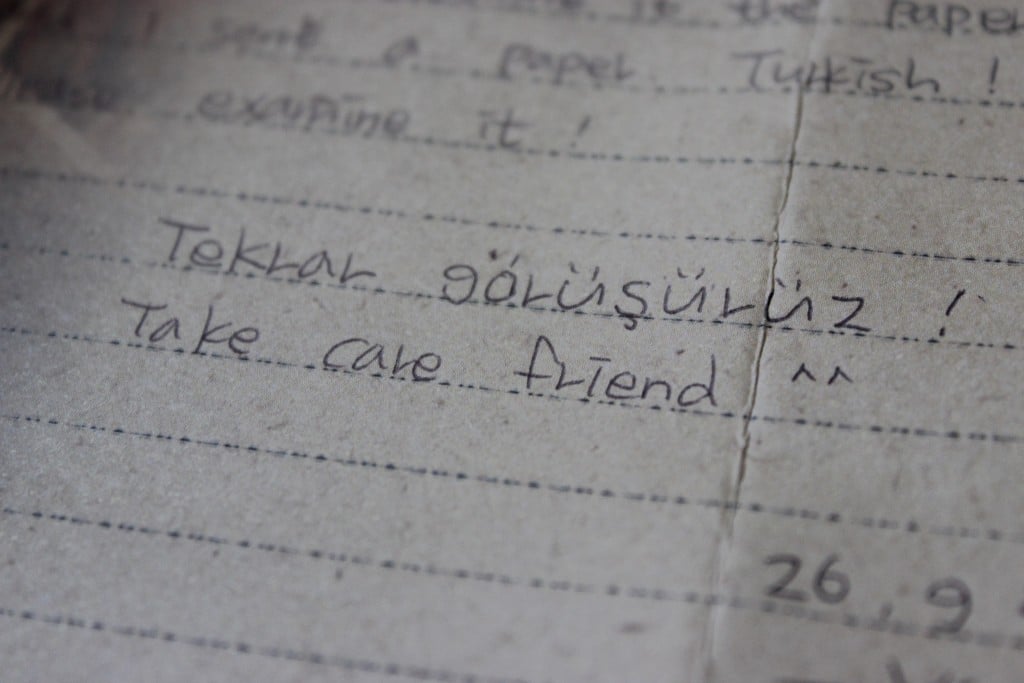 it the paper
I sent a paper Turkish !
examine it !
Tekrar görüşürüz !
Take care friend ^^
26.9